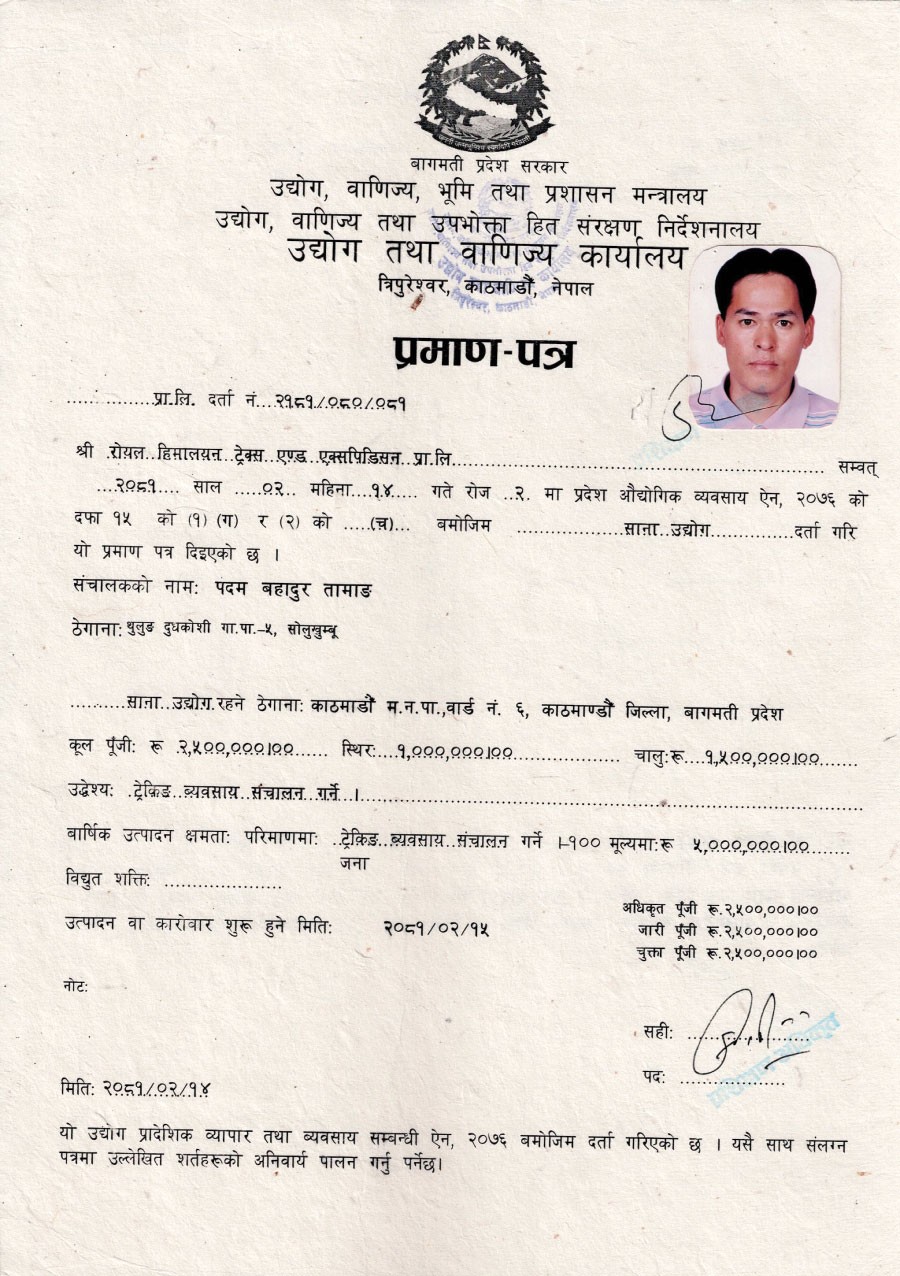 बागमती प्रदेश सरकार
उद्योग, वाणिज्य, भूमि तथा प्रशासन मन्त्रालय
उद्योग, वाणिज्य तथा उपभोक्ता हित संरक्षण निर्देशनालय
उद्योग तथा वाणिज्य कार्यालय
त्रिपुरेश्वर, काठमाडौं, नेपाल
प्रमाण-पत्र
...............प्रा.लि. दर्ता नं...२१८१/०८०/०८१
श्री रोयल हिमालयन ट्रेक्स एण्ड एक्सपिडिसन प्रा.लि............................ सम्वत्
...२०८१ साल .....०२.. महिना...१४.... गते रोज ..२. मा प्रदेश औद्योगिक व्यवसाय ऐन, २०७६ को
दफा १५ को (१) (ग) र (२) को .....(च)... बमोजिम ...............साना उद्योग...............दर्ता गरि
यो प्रमाण पत्र दिइएको छ ।
संचालकको नाम: पदम बहादुर तामाङ
ठेगाना: थुलुङ दुधकोशी गा.पा.-५, सोलुखुम्बू
..........साना उद्योग.रहने ठेगाना: काठमाडौं म.न.पा.,वार्ड नं. ६, काठमाण्डौं जिल्ला, बागमती प्रदेश
कूल पूँजी: रू २,५००,०००।००...... स्थिर:...१,०००,०००।००.................... चालु:रू...१,५००,०००।००.......
उद्धेश्य: .ट्रेकिङ..व्यवसाय संचालन गर्ने ।............................................................
वार्षिक उत्पादन क्षमता: परिमाणमा: ..ट्रेकिङ..व्यवसाय संचालन गर्ने ।-१०० मूल्यमा:रू ५,०००,०००।००......
जना
विद्युत शक्ति: .....................
अधिकृत पूँजी रू.२,५००,०००।००
उत्पादन वा कारोवार शुरू हुने मिति: २०८१/०२/१५
जारी पूँजी रू.२,५००,०००।००
चुक्ता पूँजी रू.२,५००,०००।००
नोट:
सही: .....................
पद: ..................
मिति: २०८१/०२/१४
यो उद्योग प्रादेशिक व्यापार तथा व्यवसाय सम्बन्धी ऐन, २०७६ बमोजिम दर्ता गरिएको छ । यसै साथ संलग्न
पत्रमा उल्लेखित शर्तहरूको अनिवार्य पालन गर्नु पर्नेछ।